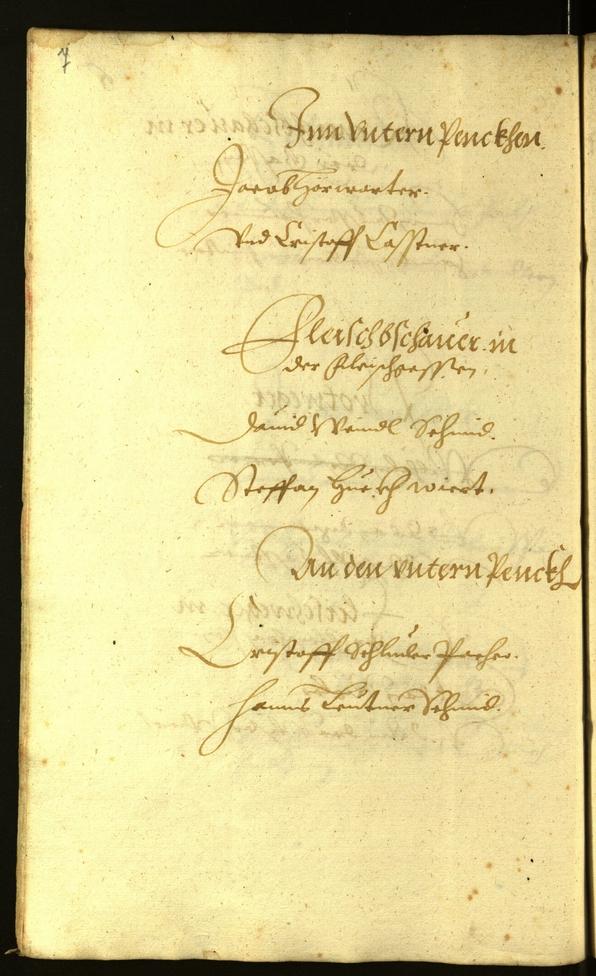 7
Inn Vntern Penckhen.
Jacob Hörwarter.
Vnd Cristoff Casstner.
Fleischbschauer in
der Fleischgassen.
Dauid Wendl Schmid.
Steffan Hue wiert.
An den vntern Penckh
Cristoff Schluder Pacher.
Hanns Leutner Schmid.